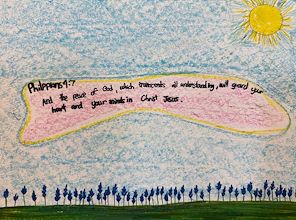 Philippians 4:7
And the peace of God, which transcends all understanding, will guard your
heart and your minds in Christ Jesus.